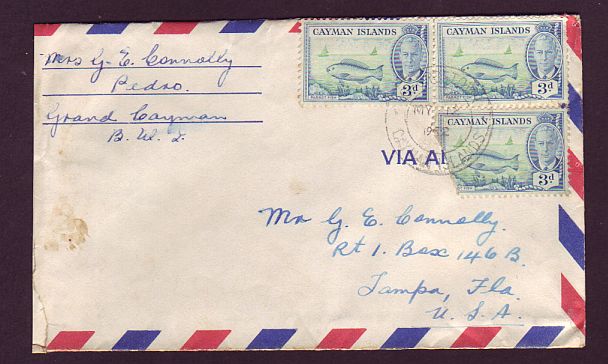 Mrs G. E. Connolly
Pedro.
Grand Cayman
B. W. I.
CAYMAN ISLANDS
3d
CAYMAN ISLANDS
3d
CAYMAN ISLANDS
3d
CAYMAN ISLANDS
VIA AI
Mr G. E. Connolly.
Rt 1. Box 146 B.
Tampa, Fla.
U. S. A.